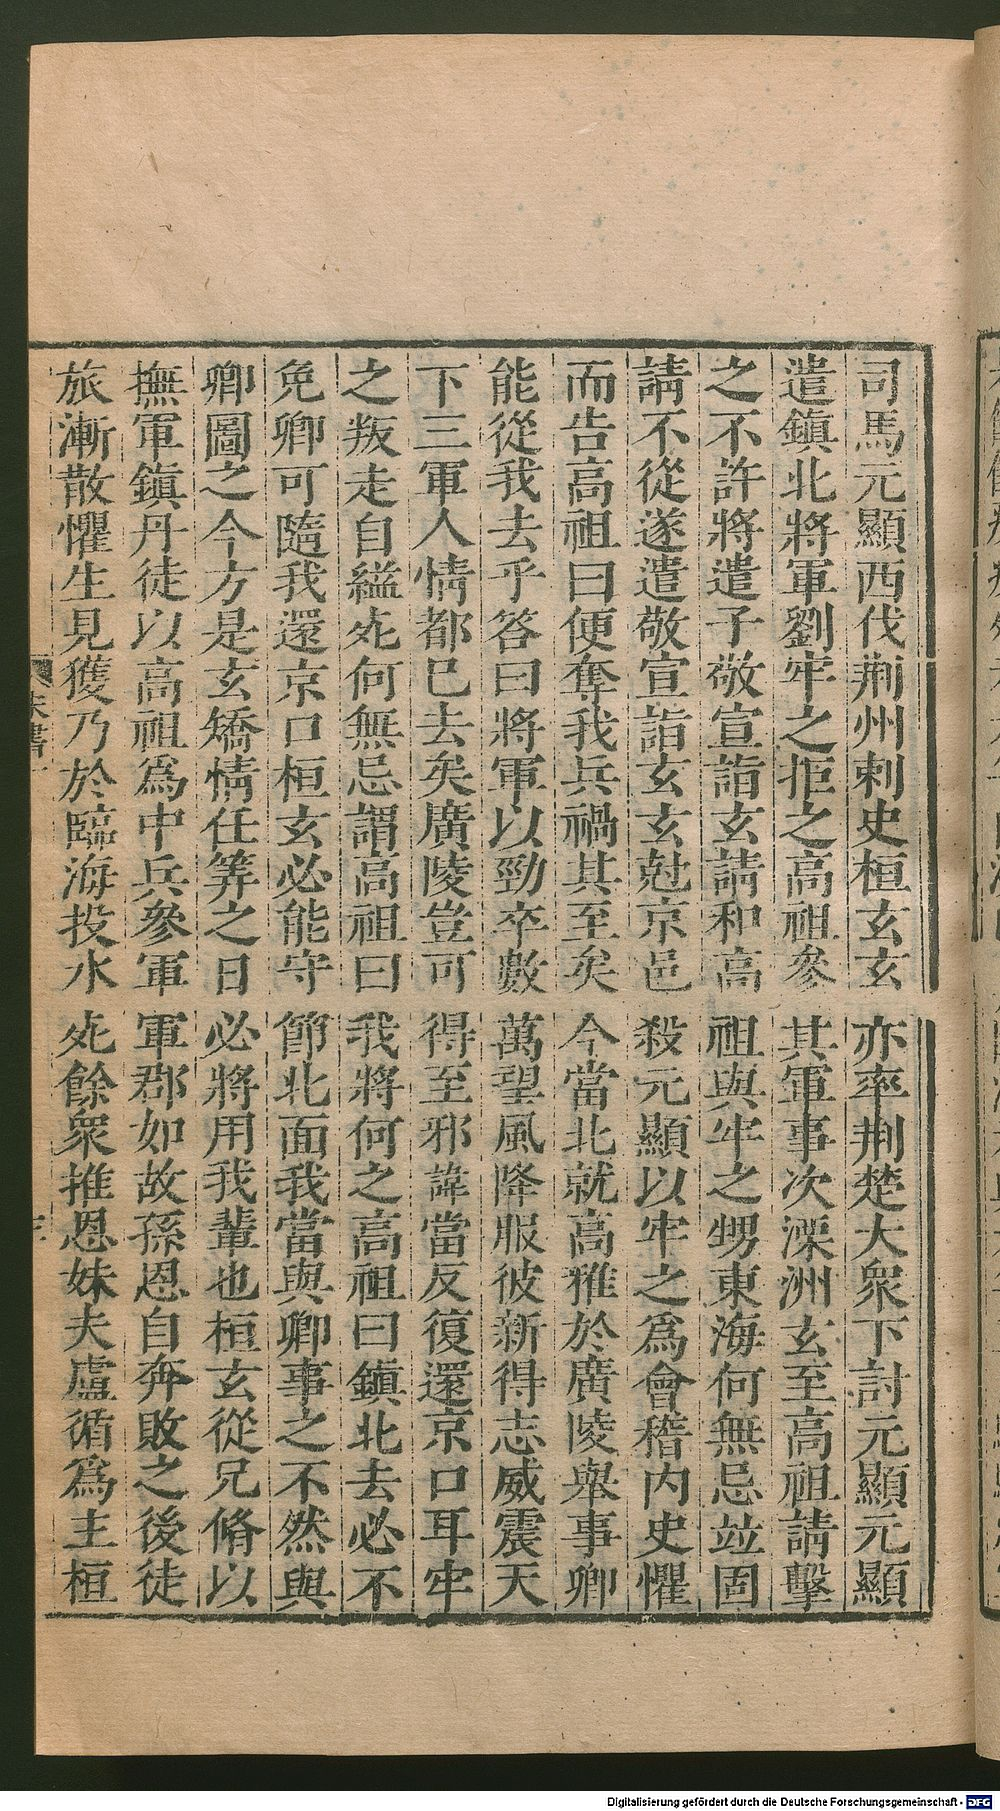 司馬元顯西伐荆州剌史桓玄玄亦率荆楚大衆下討元顯元顯
遣鎭北將軍劉牢之拒之高祖參其軍事次溧洲玄至高祖請擊
之不許將遣子敬宣詣玄請和高祖與牢之甥東海何無忌竝固
請不從遂遣敬宣詣玄玄尅京邑殺元顯以牢之爲會稽内史懼
而告高祖曰便奪我兵禍其至矣今當北就高雅於廣陵舉事卿
能從我去乎答曰將軍以勁卒數萬望風降服彼新得志威震天
下三軍人情都已去矣廣陵豈可得至邪諱當反復還京口耳牢
之叛走自縊死何無忌謂高祖曰我將何之高祖曰鎭北去必不
免卿可隨我還京口桓玄必能守節北面我當與卿事之不然與
卿圖之今方是玄矯情任筭之日必將用我輩也桓玄從兄脩以
撫軍鎭丹徒以高祖爲中兵參軍軍郡如故孫恩自奔敗之後徒
旅漸散懼生見獲乃於臨海投水死餘衆推恩妹夫盧循爲主桓
Digitalisierung gefördert durch die Deutsche Forschungsgemeinschaft - DFG